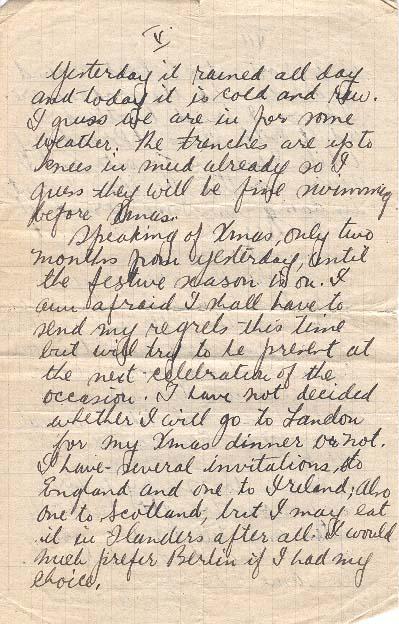 V
Yesterday it rained all day
and today it is cold and raw.
I guess we are in for some
weather. The trenches are up to
knees in mud already so I
guess they will be fine swimming
before Xmas.
Speaking of Xmas, only two
months from yesterday, until
the festive season is on. I
am afraid I shall have to
send my regrets this time
but will try to be present at
the next celebration of the
occasion. I have not decided
whether I will go to London
for my Xmas dinner or not.
I have several invitations, to
England and one to Ireland; also
one to Scotland, but I may eat
it in Flanders after all. I would
much prefer Berlin if I had my
choice.